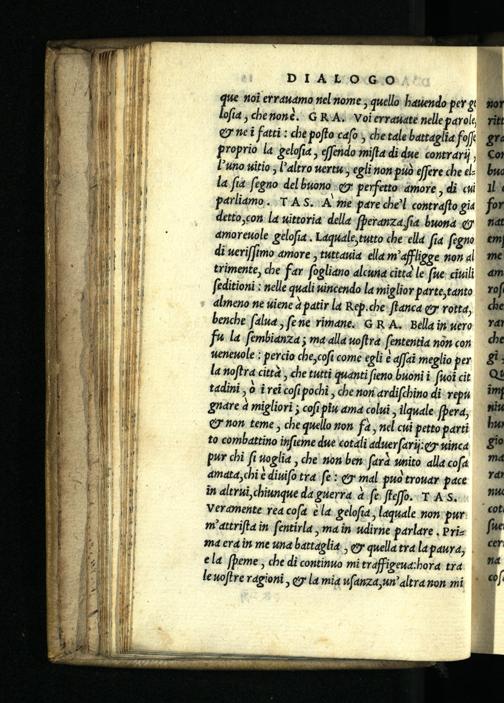 DIALOGO
que noi errauamo nel nome, quello hauendo per ge
losia, che non è. GRA. Voi errauate nelle parole,
& ne i fatti: che posto caso, che tale battaglia fosse
proprio la gelosia, essendo mista di due contrarij,
l'uno uitio, l'altro uertu, egli non può essere che el-
la sia segno del buono & perfetto amore, di cui
parliamo. TAS. A' me pare che'l contrasto gia
detto, con la uittoria della speranza, sia buona &
amoreuole gelosia. Laquale, tutto che ella sia segno
di uerissimo amore, tuttauia ella m'affligge non al
trimente, che far sogliano alcuna città le sue ciuili
seditioni: nelle quali uincendo la miglior parte, tanto
almeno ne uiene à patir la Rep. che stanca & rotta,
benche salua, se ne rimane. GRA. Bella in uero
fu la sembianza; ma alla uostra sententia non con
ueneuole: percio che, cosi come egli è assai meglio per
la nostra città, che tutti quanti sieno buoni i suoi cit
tadini, ò i rei cosi pochi, che non ardischino di repu
gnare à migliori; cosi piu ama colui, ilquale spera,
& non teme, che quello non fà, nel cui petto parti
to combattino insieme due cotali aduersarij: & uinca
pur chi si uoglia, che non ben sarà unito alla cosa
amata, chi è diuiso tra se: & mal può trouar pace
in altrui, chiunque da guerra à se stesso. TAS.
Veramente rea cosa è la gelosia, laquale non pur
m'attrista in sentirla, ma in udirne parlare. Pri-
ma era in me una battaglia, & quella tra la paura,
e la speme, che di continuo mi traffigeua: hora tra
le uostre ragioni, & la mia usanza, un'altra non mi